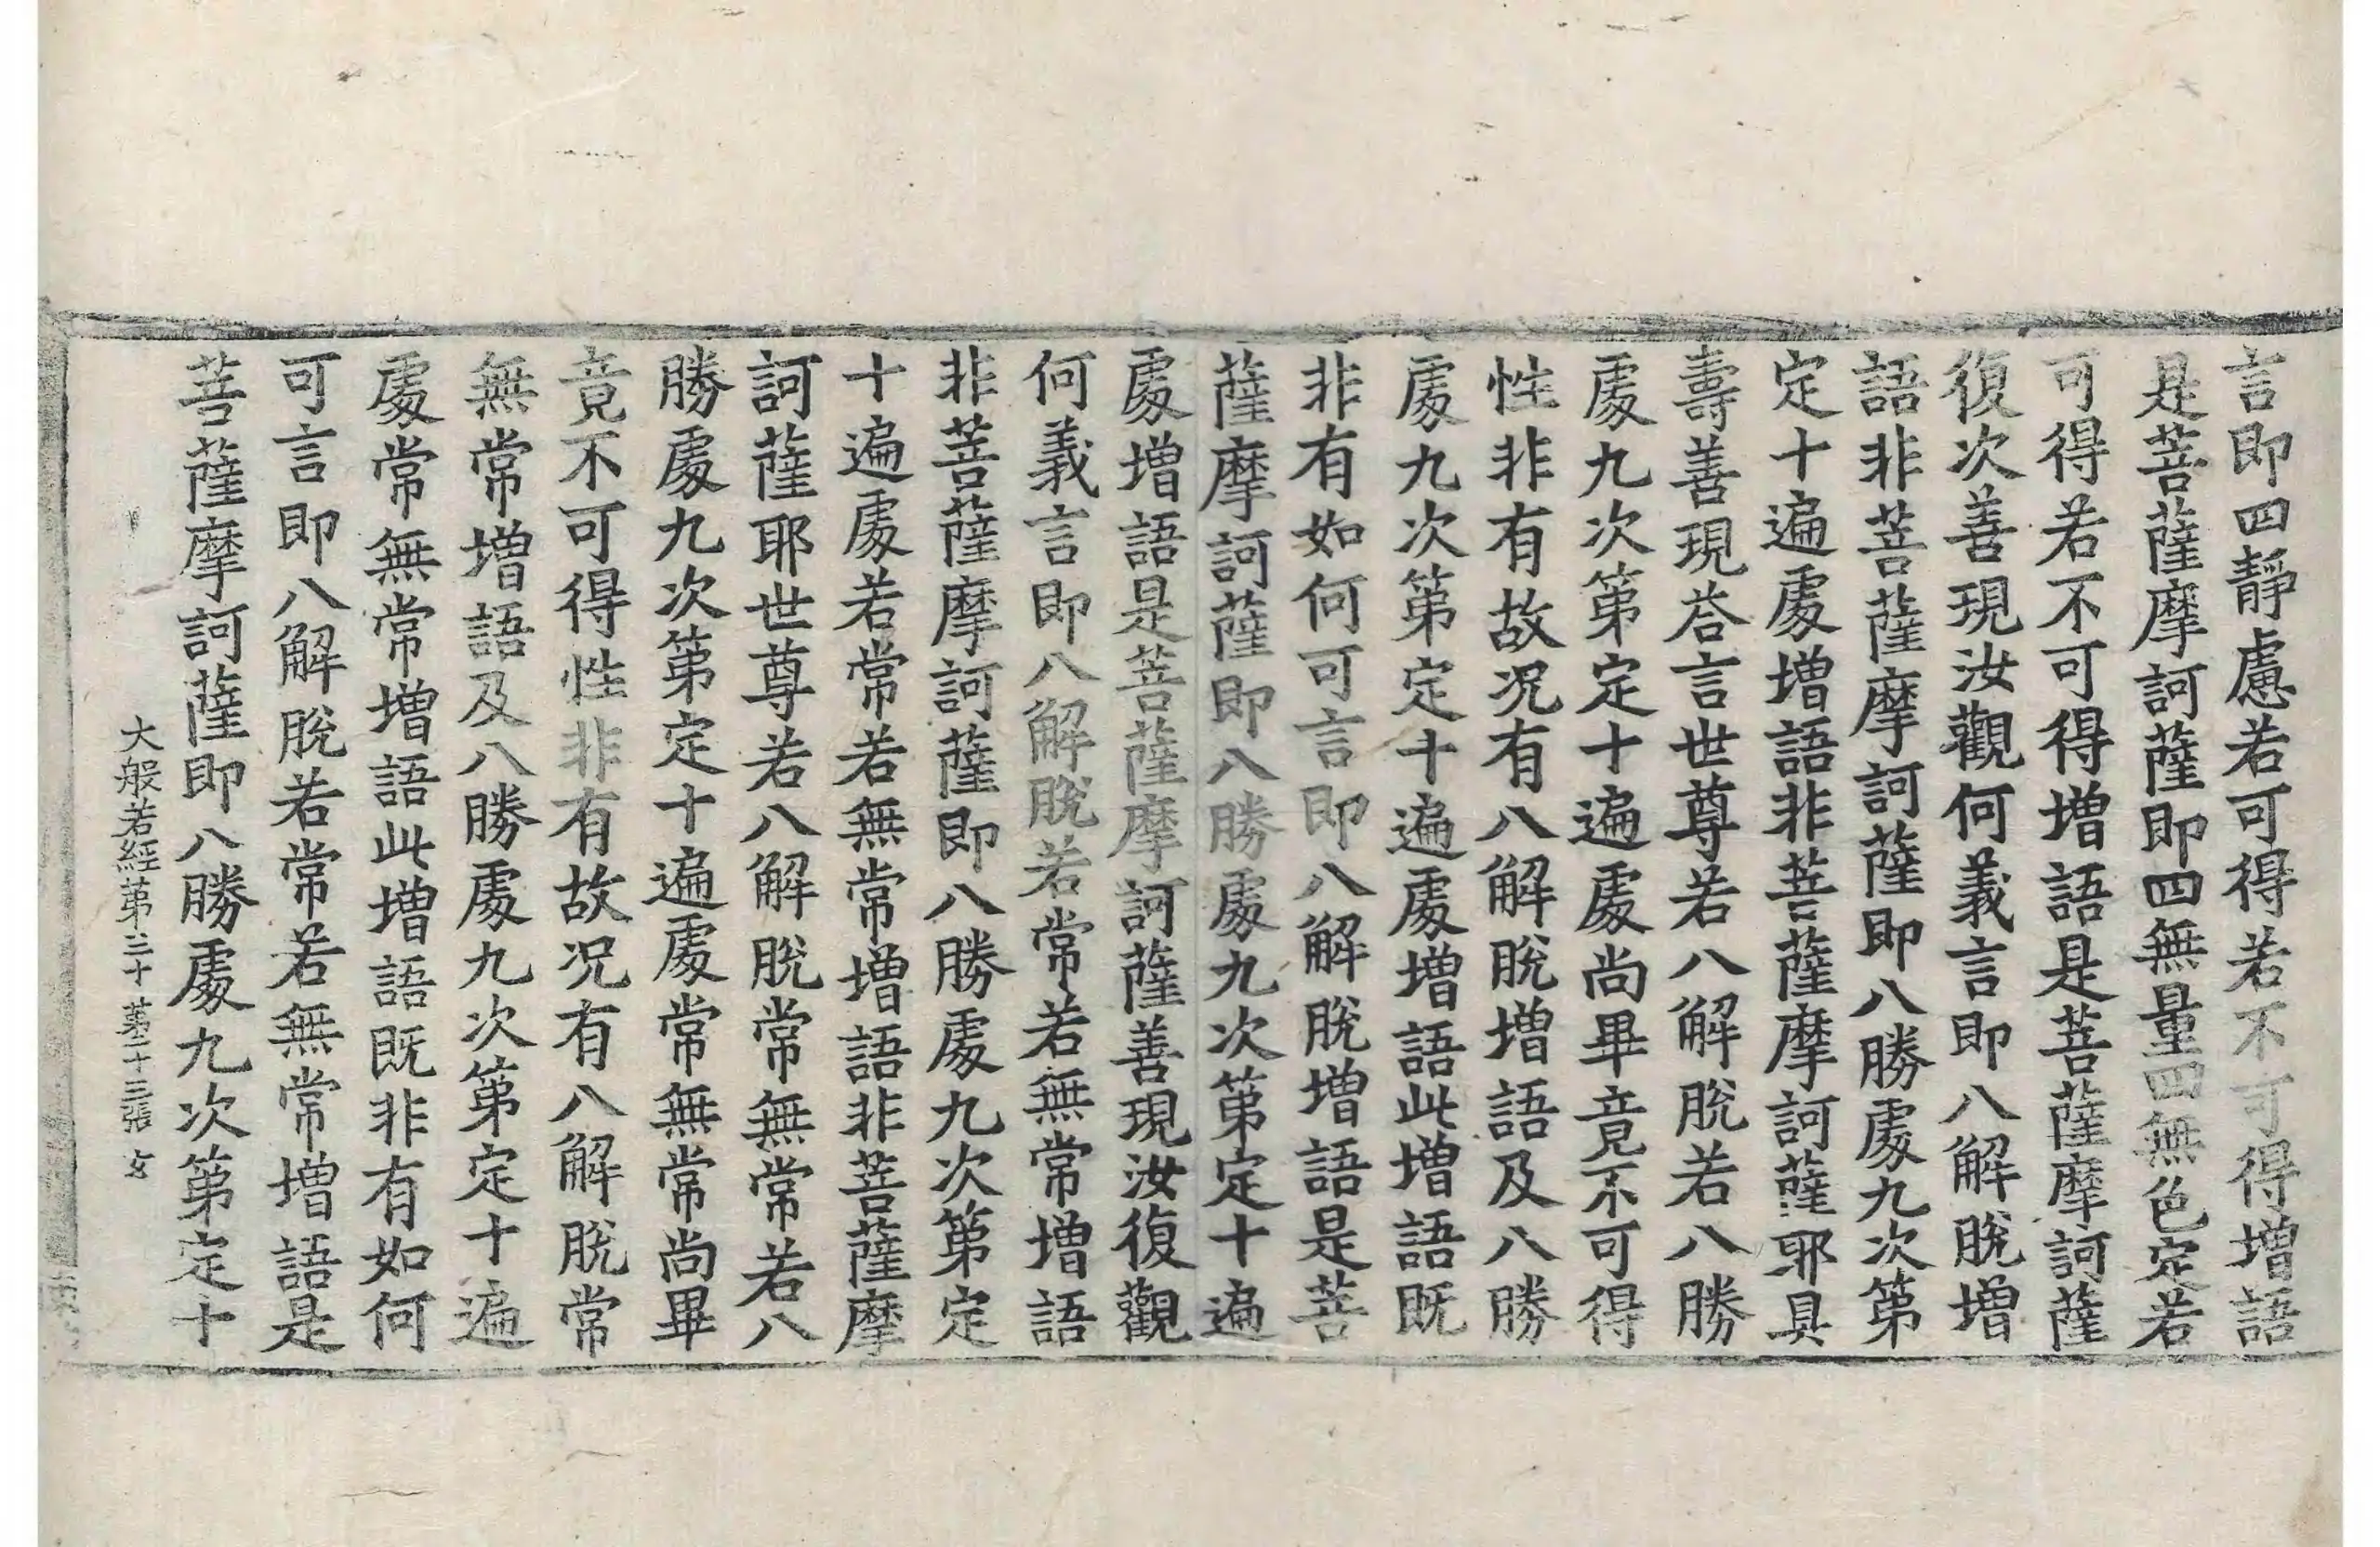 言即四靜慮若可得若不可得增語
是菩薩摩訶薩即四無量四無色定若
可得若不可得增語是菩薩摩訶薩
復次善現汝觀何義言即八解脫增
語非菩薩摩訶薩即八勝處九次第
定十遍處增語非菩薩摩訶薩耶具
壽善現荅言世尊若八解脫若八勝
處九次第定十遍處尚畢竟不可得
性非有故況有八解脫增語及八勝
處九次第定十遍處增語此增語既
非有如何可言即八解脫增語是菩
薩摩訶薩即八勝處九次第定十遍
處增語是菩薩摩訶薩善現汝復觀
何義言即八解脫若常若無常增語
非菩薩摩訶薩即八勝處九次第定
十遍處若常若無常增語非菩薩摩
訶薩耶世尊若八解脫常無常若八
勝處九次第定十遍處常無常尚畢
竟不可得性非有故況有八解脫常
無常增語及八勝處九次第定十遍
處常無常增語此增語既非有如何
可言即八解脫若常若無常增語是
菩薩摩訶薩即八勝處九次第定十
大般若經第三十 第二十三張